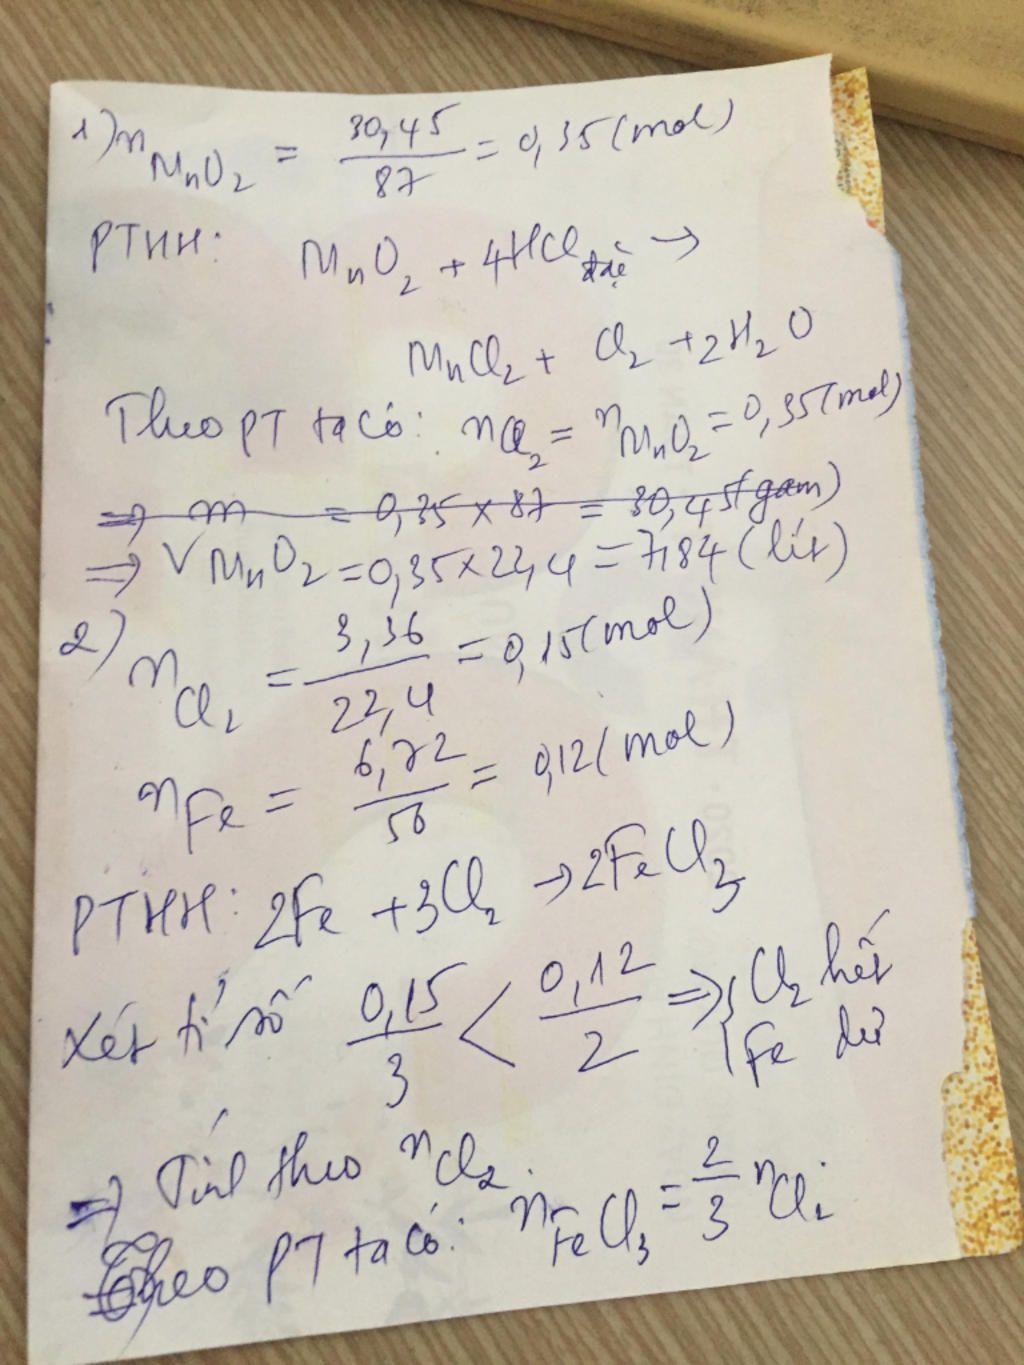 1) nMnO2 = 30,45/87 = 0,35 (mol)
PTHH: MnO2 + 4HClđặc →
MnCl2 + Cl2 + 2H2O
Theo PT ta có: nCl2 = nMnO2 = 0,35 (mol)
=> m = 0,35 x 87 = 30,45 (gam)
=> V MnO2 = 0,35 x 22,4 = 7,84 (lít)
2) nCl2 = 3,36/22,4 = 0,15 (mol)
nFe = 6,72/56 = 0,12 (mol)
PTHH: 2Fe + 3Cl2 → 2FeCl3
Xét tỉ số 0,15/3 < 0,12/2 => { Cl2 hết
Fe dư
=> Tính theo nCl2.
Theo PT ta có: nFeCl3 = 2/3 nCl2